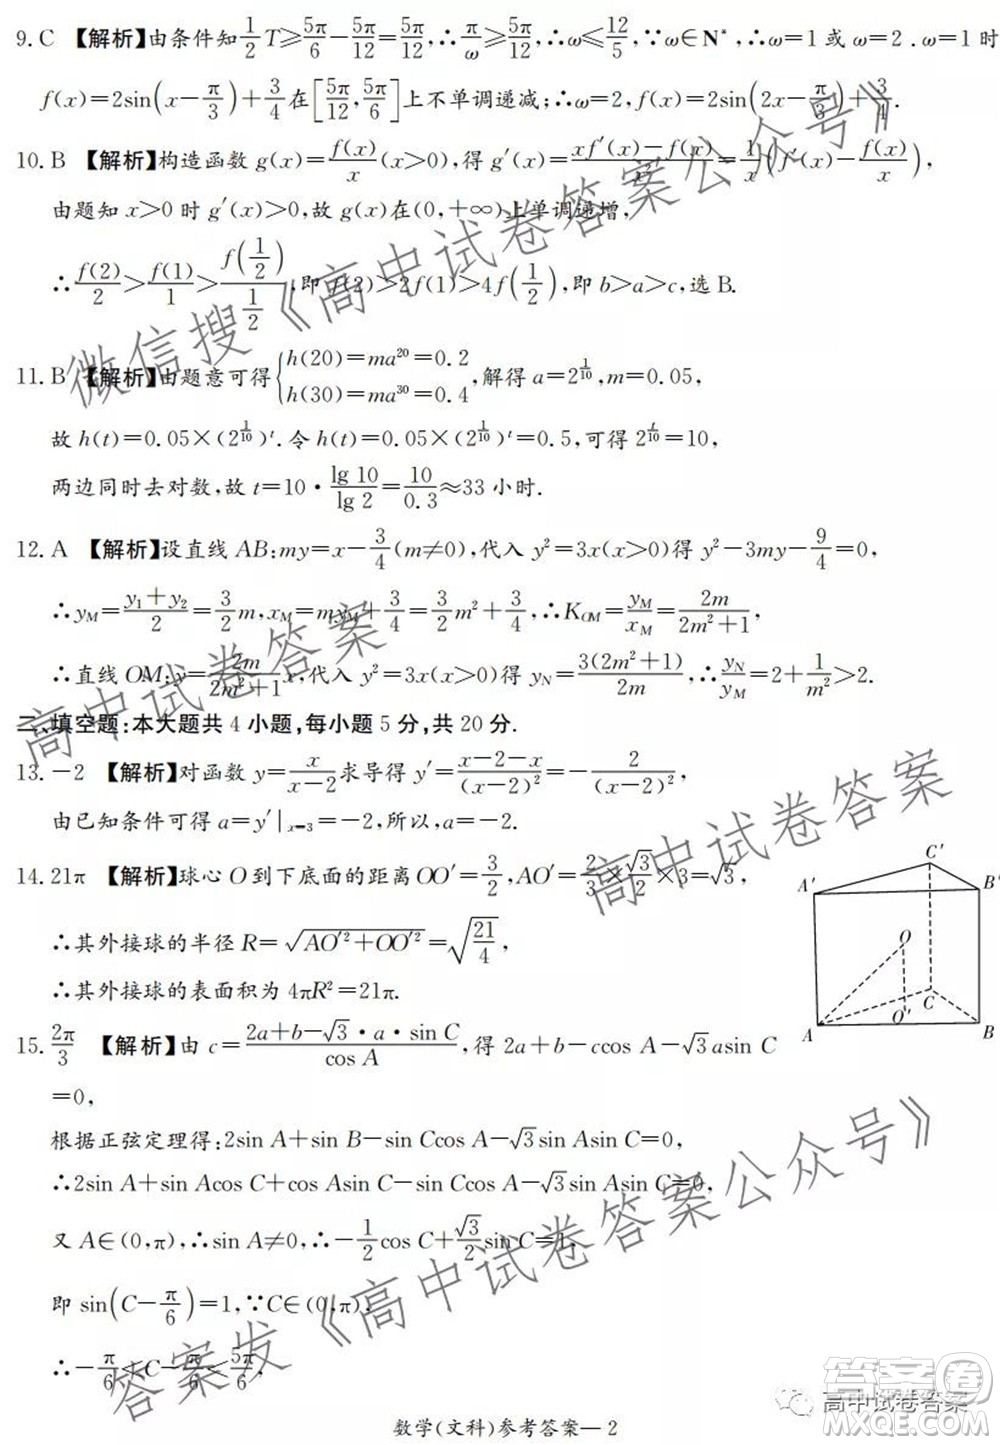 9. C 【解析】由条件知 1/2 T ≥ 5π/6 − 5π/12 = 5π/12, ∴ π/ω ≥ 5π/12, ∴ω ≤ 12/5, ∵ω∈N*, ∴ω=1 或 ω=2. ω=1 时
f(x)=2sin(x−π/3)+3/4 在 [5π/12, 5π/6] 上不单调递减; ∴ω=2, f(x)=2sin(2x−π/3)+3/4.
10. B 【解析】构造函数 g(x)=f(x)/x (x>0), 得 g′(x)=(xf′(x)−f(x))/x² = 1/x (f′(x)−f(x)/x),
由题知 x>0 时 g′(x)>0, 故 g(x)在(0,+∞)上单调递增,
∴ f(2)/2 > f(1)/1 > f(1/2)/(1/2), 即 f(2)>2f(1)>4f(1/2), 即 b>a>c, 选 B.
11. B 【解析】由题意可得 { h(20)=ma²⁰=0.2
h(30)=ma³⁰=0.4 , 解得 a=2^(1/10), m=0.05,
故 h(t)=0.05×(2^(1/10))^t. 令 h(t)=0.05×(2^(1/10))^t=0.5, 可得 2^(t/10)=10,
两边同时去对数, 故 t=10·lg 10/lg 2=10/0.3≈33 小时.
12. A 【解析】设直线 AB: my=x−3/4 (m≠0), 代入 y²=3x(x>0)得 y²−3my−9/4=0,
∴y_M=(y₁+y₂)/2=3/2 m, x_M=my_M+3/4=3/2 m²+3/4, ∴K_OM=y_M/x_M=2m/(2m²+1),
∴直线 OM: y=2m/(2m²+1) x, 代入 y²=3x(x>0)得 y_N=3(2m²+1)/2m, ∴y_N/y_M=2+1/m²>2.
二、填空题:本大题共 4 小题,每小题 5 分,共 20 分.
13. −2 【解析】对函数 y=x/(x−2) 求导得 y′=(x−2−x)/(x−2)²=−2/(x−2)²,
由已知条件可得 a=y′|x=3=−2, 所以, a=−2.
14. 21π 【解析】球心 O 到下底面的距离 OO′=3/2, AO′=2/3×√3/2×3=√3,
∴其外接球的半径 R=√(AO′²+OO′²)=√(21/4),
∴其外接球的表面积为 4πR²=21π.
A′
C′
B′
O
C
O′
A
B
15. 2π/3 【解析】由 c=(2a+b−√3·a·sin C)/cos A, 得 2a+b−ccos A−√3asin C
=0,
根据正弦定理得: 2sin A+sin B−sin Ccos A−√3sin Asin C=0,
∴2sin A+sin Acos C+cos Asin C−sin Ccos A−√3sin Asin C=0,
又 A∈(0,π), ∴sin A≠0, ∴−1/2 cos C+√3/2 sin C=1,
即 sin(C−π/6)=1, ∵C∈(0,π),
∴−π/6<C−π/6<5π/6,
数学(文科)参考答案—2
微信搜《高中试卷答案公众号》
高中试卷答案
高中试卷答案
答案发《高中试卷答案公众号》
高中试卷答案
答案圈
MXEQE.COM